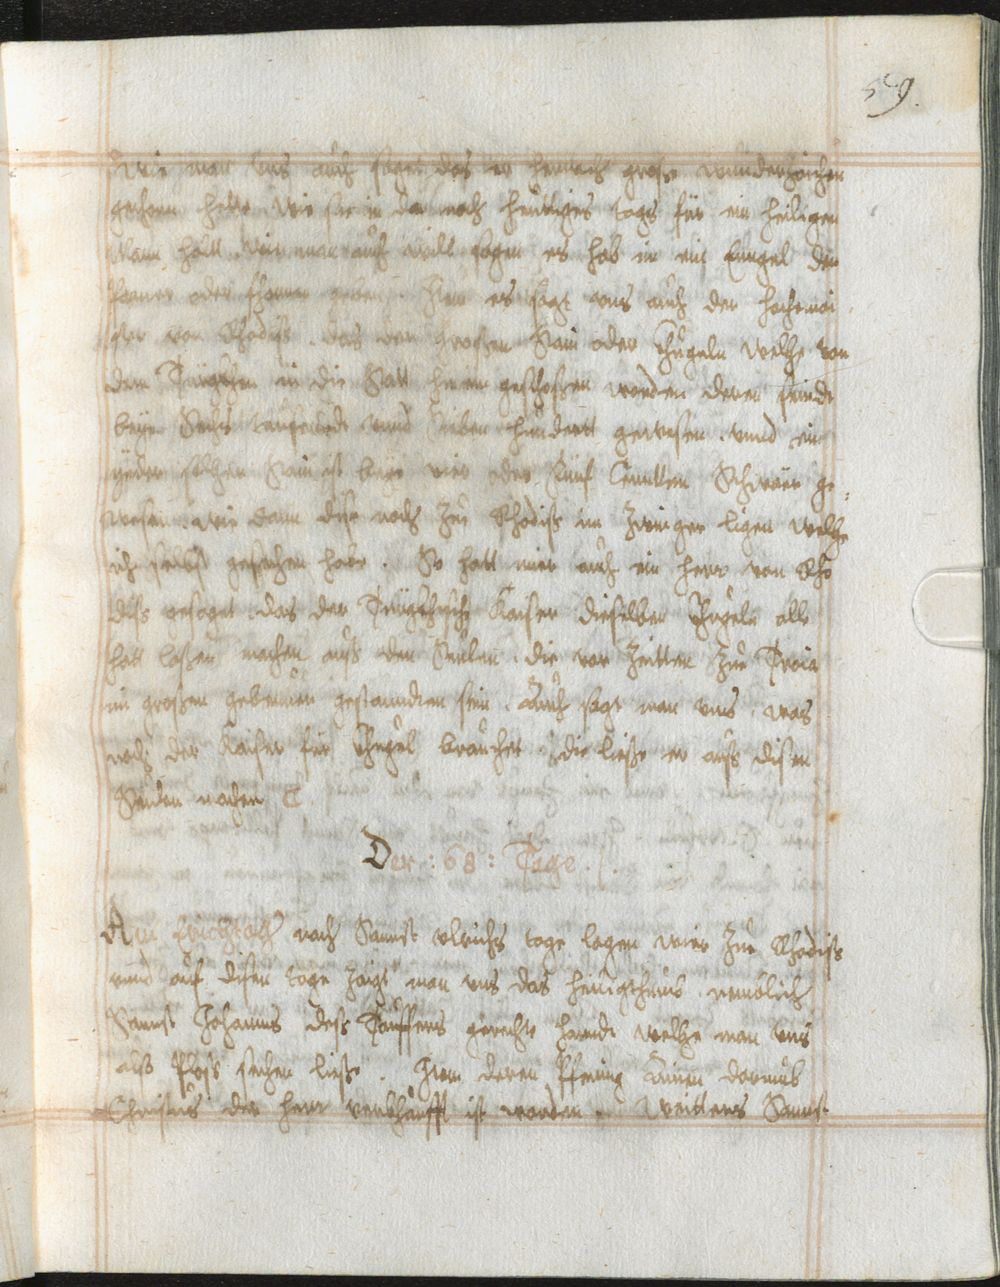 59.
Wie man uns auch saget das er hernach grose wunderzaichen
gethonn hette. Wie sie in da noch heuttiges tags für ein heiligen
Mann halt. Wie man auch will sagen es hab im ein Enngel den
oder geben. Zum es sagt uns auch der hochmai,
ster von Rhodiss. das der grossen Stain oder Khugeln welche von
dem Türgkhen in die Statt hinein geschossen worden deren seindt
beyn Sechs taussendt unnd siben hundertt gewesen. unnd ein
yeder solcher Stain ist bein vier oder fünf Centten Schwäer ge,
wesen. wie dann dise noch zue Rhodiss im Zwinger ligen welche
ich selbst gesehen habe. So hatt mier auch ein herr von Rho
diss gesaget das der Türgkhisch Kaiser dieselben Khugeln alle
hatt lassen machen auss den Seulen. die vor Zeitten zue Troia
in grossen gebeuen gestanndten sein. Auch sagt man uns. was
noch der Kaiser für Khugel brauchet. die liesse er auss disen
Seulen machen
Der : 68 : Tage.
Am Erichtag nach Sannct Ulrichs tage lagen wier zue Rhodiss
unnd auf disen tage zaigt man uns das heiligthumb. nemblich
Sannct Johannis dess Tauffers gerechte handt welche man uns
als ploss sehen liesse. Item deren Pfening ainen darumb
Christus der herr verkhaufft ist worden. Weitters Sannct